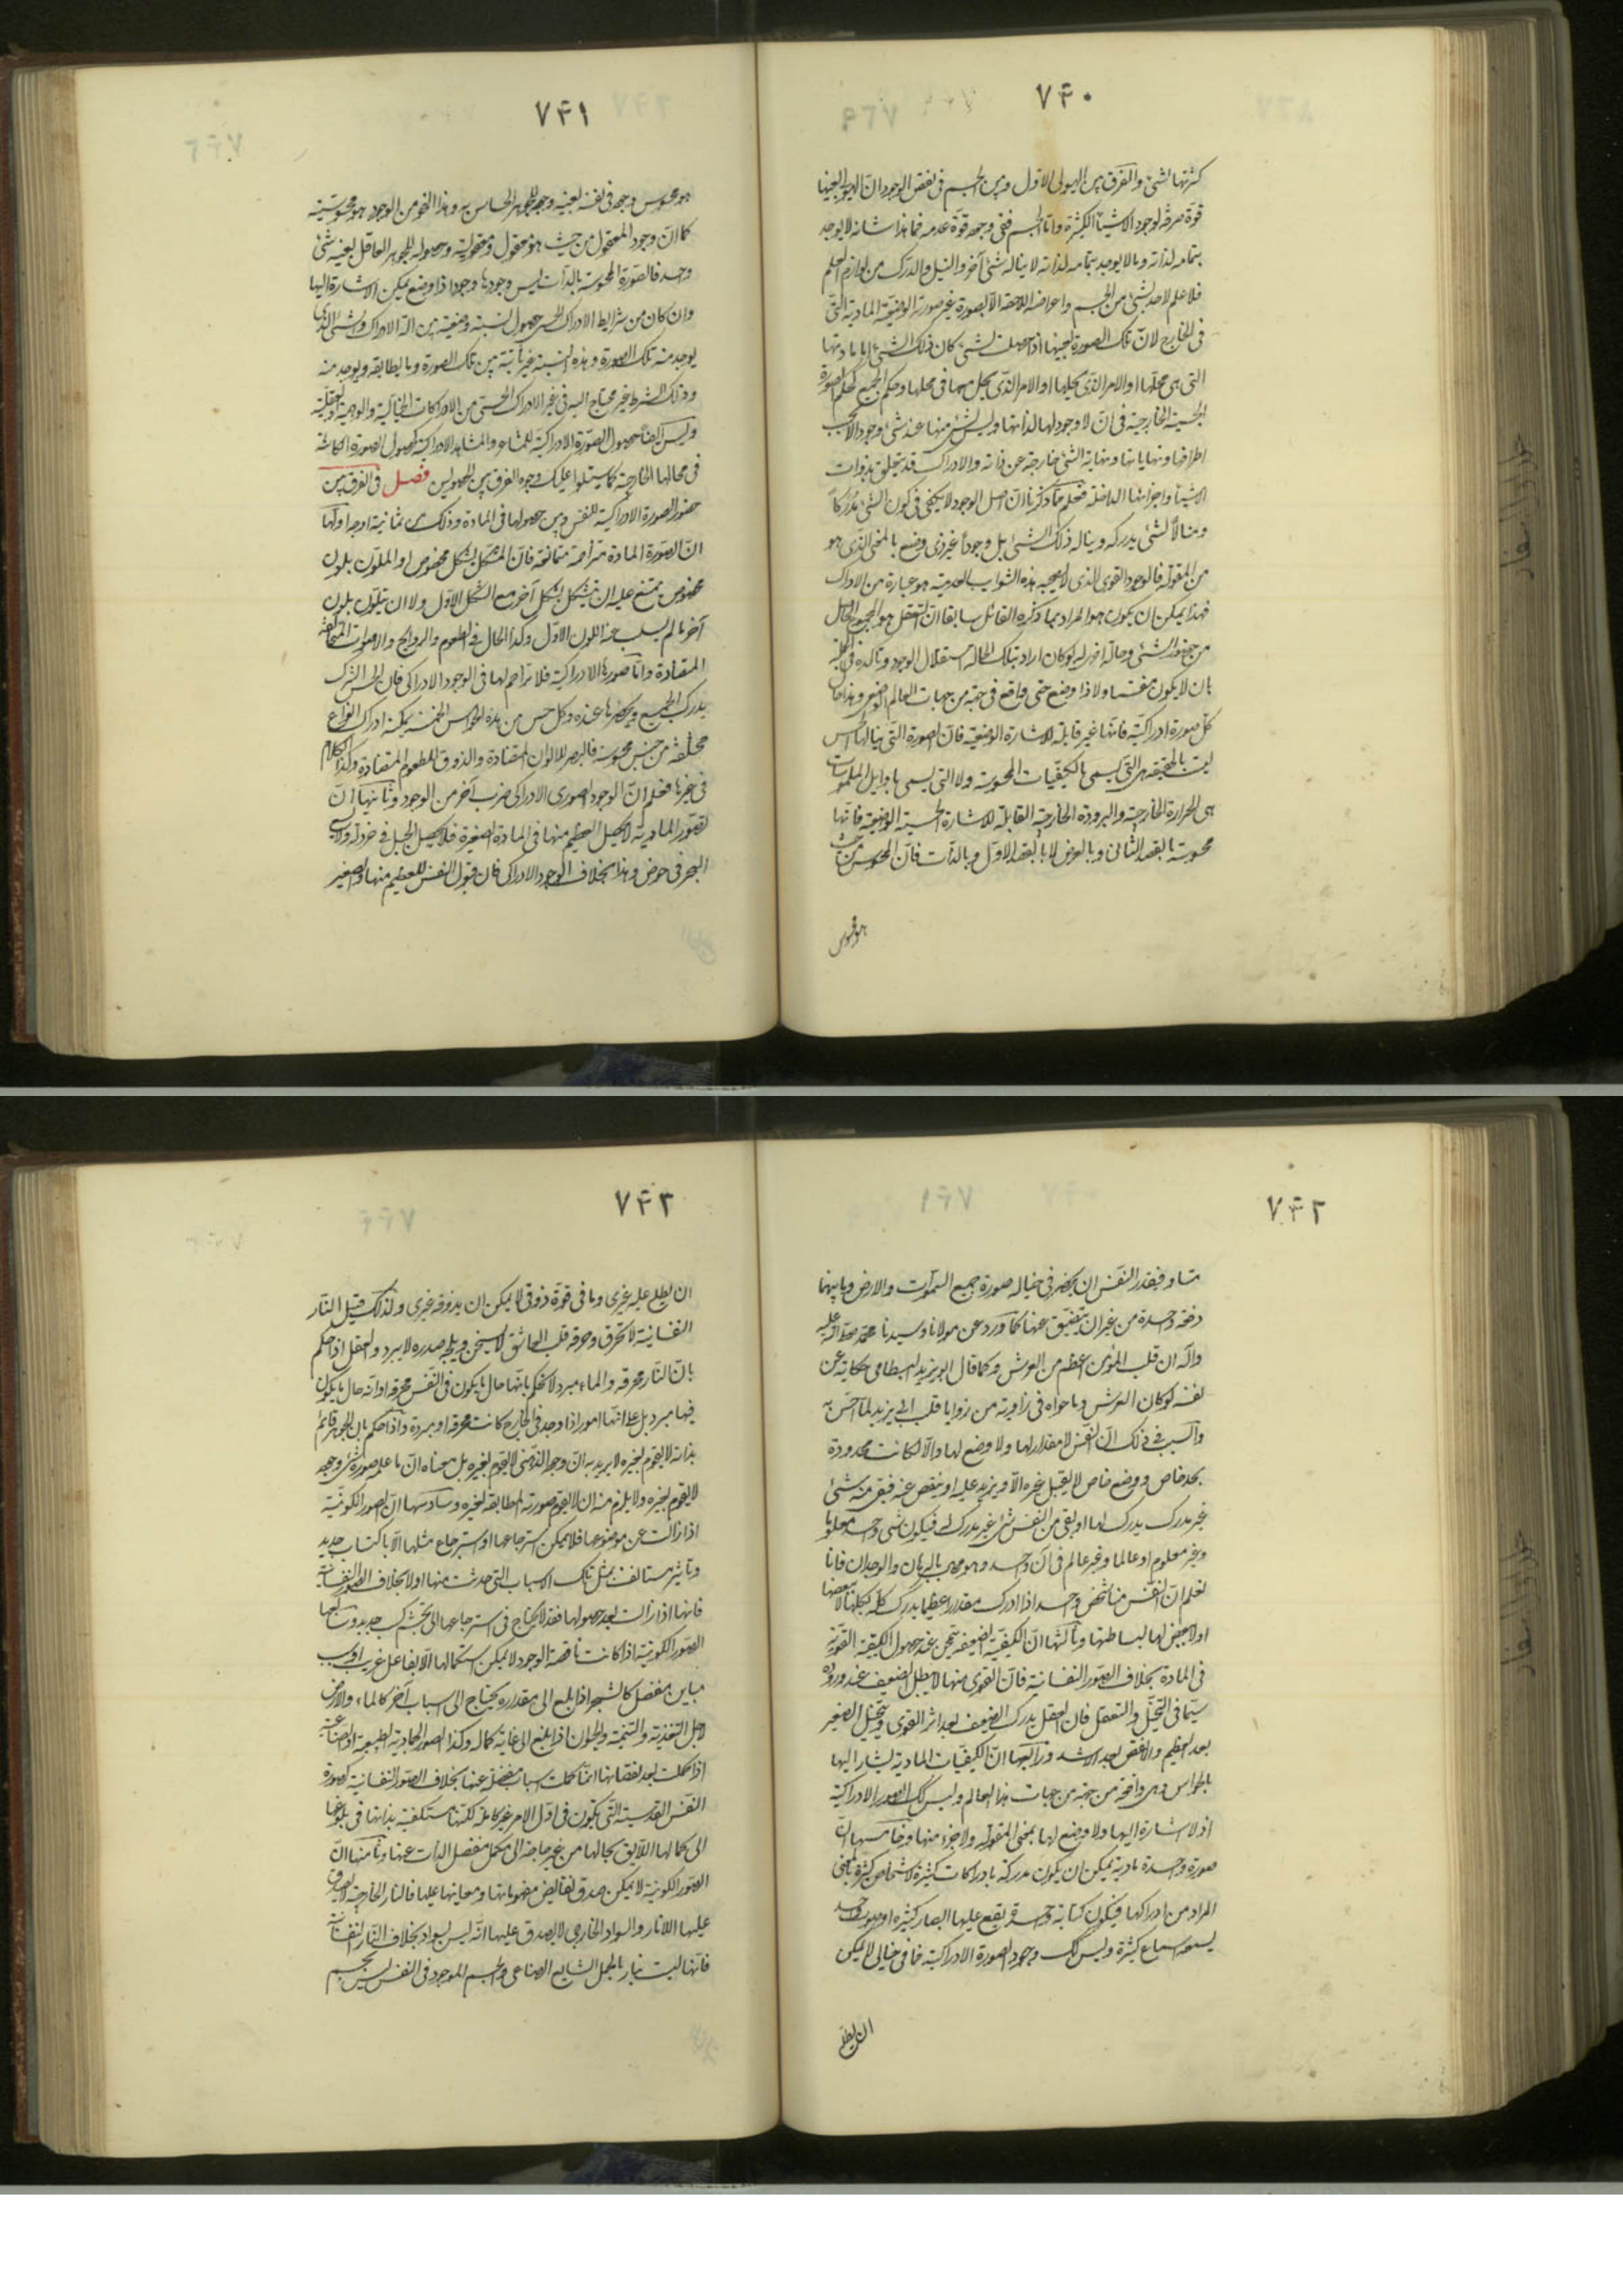 ٧٤٠
كثرتها شئ والفرق بين الهيولى الاولى وبين الجسم فى نقص الوجود ان الهيولى بعينها
قوة صرفة لوجود الاشياء الكثيرة واما الجسم ففى وجوده قوة عدمه فما هذا شانه لا يوجد
بتمامه لذاته وما لا يوجد بتمامه لذاته لا يناله شئ آخر والنيل والدرك من لوازم العلم
فلا علم لاحد بشئ من الجسم واعراضه اللاحقة الا بصورة غير صورته الوضعية المادية التى
فى الخارج لان تلك الصورة بعينها اذا حصلت لشئ كان ذلك الشئ اما مادتها
التى هى محلها او الامر الذى يحلها او الامر الذى يحل معها فى محلها وحكم الجميع كحكم الصورة
الجسمية الخارجية فى ان لا وجود لها لذاتها وليس لشئ منها عند شئ وجود الا بحسب
اطرافها ونهاياتها ونهاية الشئ خارجة عن ذاته والادراك قد يتعلق بذوات
الاشياء واجزائها الداخلة فعلم مما ذكرنا ان اصل الوجود لا يكفى فى كون الشئ مدركا
ومنالا لشئ يدركه ويناله ذلك الشئ بل وجودا غير ذى وضع بالمعنى الذى هو
من المقولة فالوجود القوى الذى لا يصحبه هذه الشوايب العدمية هو عبارة من الادراك
فهذا يمكن ان يكون هو المراد مما ذكره القائل سابقا ان التعقل هو المجموع الحاصل
من حضور الشئ وحالة اخرى له لو كان اراد بتلك الحالة استقلال الوجود وتاكده فى الجملة
بان لا يكون منقسما ولا ذا وضع حتى واقع فى جهة من جهات العالم الوضعى وهذا حال
كل صورة ادراكية فانها غير قابلة للاشارة الوضعية فان الصورة التى ينالها الحس
ليست بالحقيقة هى التى يسمى بالكيفيات المحسوسة ولا التى يسمى باوايل الملموسات
هى الحرارة الخارجية والبرودة الخارجية القابلة للاشارة الحسية الوضعية فانها
محسوسة بالقصد الثانى وبالعرض لا بالقصد الاول وبالذات فان المحسوس من حيث
هو محسوس
٧٤١
هو محسوس وجوده فى نفسه بعينه وجوده للجوهر الحساس به وهذا النحو من الوجود هو محسوسيته
كما ان وجود المعقول من حيث هو معقول ومعقوليته وحصوله للجوهر العاقل بعينه شئ
واحد فالصورة المحسوسة بالذات ليس وجودها وجودا ذا وضع يمكن الاشارة اليها
وان كان من شرايط الادراك الحسى حصول نسبة وضعية بين آلة الادراك والشئ الذى
يوجد منه تلك الصورة وهذه النسبة غير ثابتة بين تلك الصورة وما يطابقه ويوجد منه
وذلك الشرط غير محتاج اليه فى غير الادراك الحسى من الادراكات الخيالية والوهمية والعقلية
وليس ايضا حصول الصورة الادراكية للمشاعر والمشاهد الادراكية كحصول الصورة الكائنة
فى محالها الخارجة كما سيتلوا عليك وجوه الفرق بين الحصولين فصل فى الفرق بين
حضور الصورة الادراكية للنفس وبين حصولها فى المادة وذلك من ثمانية اوجه اولها
ان الصورة المادة متزاحمة متمانعة فان المتشكل بشكل مخصوص او الملون بلون
مخصوص يمتنع عليه ان يتشكل بشكل آخر مع الشكل الاول ولا ان يتلون بلون
آخر ما لم يسلب عنه اللون الاول وكذا الحال فى الطعوم والروايح والاصوات المتخالفة
المتضادة واما صورها الادراكية فلا تزاحم لها فى الوجود الادراكى فان الحس المشترك
يدرك الجميع ويحضرها عنده وكل حس من هذه الحواس الخمسة يمكنه ادراك انواع
مختلفة من جنس محسوسه فالبصر للالوان المتضادة والذوق للطعوم المتضادة وكذا الكلام
فى غيرها فعلم ان الوجود الصورى الادراكى ضرب آخر من الوجود وثانيها ان
الصور المادية لا يحصل العظيم منها فى المادة الصغيرة فلا يحصل الجبل فى خردلة ولا يسع
البحر فى حوض وهذا بخلاف الوجود الادراكى فان قبول النفس للعظيم منها والصغير
٧٤٢
متساو فيقدر النفس ان يحضر فى خياله صورة جميع السموات والارض وما بينهما
دفعة واحدة من غير ان يتضيق عنها كما ورد عن مولانا وسيدنا محمد صلى الله عليه
وآله ان قلب المؤمن اعظم من العرش وكما قال ابو يزيد البسطامى حكاية عن
نفسه لو كان العرش وما حواه فى زاوية من زوايا قلب ابى يزيد لما احس به
والسبب فى ذلك ان النفس لا مقدار لها ولا وضع لها والا لكانت محدودة
بحد خاص ووضع خاص لا يقبل غيره الا ويزيد عليه او ينقص عنه فبقى منه شئ
غير مدرك يدرك لها او بقى من النفس شئ غير مدرك له فيكون شئ واحد معلوما
وغير معلوم او عالما وغير عالم فى آن واحد وهو محال بالبرهان والوجدان فانا
نعلم ان النفس منا شخص واحد اذا ادرك مقدارا عظيما يدرك كله بكلها لا ببعضها
اولا بعض لها لبساطتها وثالثها ان الكيفية الضعيفة ينمحى عند حصول الكيفية القوية
فى المادة بخلاف الصور النفسانية فان القوى منها لا يبطل الضعيف عند وروده
سيما فى التخيل والتعقل فان العقل يدرك الضعيف بعد اثر القوى ويتخيل الصغير
بعد العظيم والانقص بعد الاشد ورابعها ان الكيفيات المادية يشار اليها
بالحواس وهى واقعة من جهة من جهات هذا العالم وليس كك الصور الادراكية
اذ لا اشارة اليها ولا وضع لها بمعنى المقولة ولا جزء منها وخامسها ان
صورة واحدة مادية يمكن ان يكون مدركة بادراكات كثيرة لاشخاص كثيرة بالمعنى
المراد من ادراكها فيكون كتابة واحدة يقع عليها ابصار كثيرة او صوت واحد
يسمعه اسماع كثيرة وليس كك وجود الصورة الادراكية فما فى خيالى لا يمكن
ان يطلع
٧٤٣
ان يطلع عليه غيرى وما فى قوة ذوقى لا يمكن ان يذوقه غيرى ولذلك قيل النار
النفسانية لا تحرق وحرقة قلب العاشق لا يسخن وثلج صدره لا يبرد والعقل اذا حكم
بان النار محرقة والماء مبرد لا نحكم بانها حال ما يكون فى النفس محرقة او انه حال ما يكون
فيها مبرد بل على انها امور اذا وجد فى الخارج كانت محرقة او مبردة واذا حكم بان الجوهر قائم
بذاته لا يقوم لغيره لا يريد به ان وجوده الذهنى لا يقوم لغيره بل معناه ان ما علم صورة شئ وجوده
لا يقوم لغيره ولا يلزم منه ان لا يقوم صورته المطابقة لغيره وسادسها ان الصور الكونية
اذا زالت عن موضوعها فلا يمكن استرجاعها او استرجاع مثلها الا باكتساب جديد
وتاثير مستانف بمثل تلك الاسباب التى حدثت منها اولا بخلاف الصور النفسانية
فانها اذا زالت بعد حصولها فقد لا يحتاج فى استرجاعها الى تجشم كسب جديد وسابعها
الصور الكونية اذا كانت ناقصة الوجود لا يمكن استكمالها الا بفاعل غريب او سبب
مباين منفصل كالشجر اذا بلغ الى مقداره يحتاج الى اسباب آخر كالماء والارض
لاجل التغذية والتنمية والحيوان اذا بلغ الى غاية كماله وكذا الصور الجمادية الطبيعية او الصناعية
اذا كملت بعد نقصانها انما كملت اسباب منفصلة عنها بخلاف الصور النفسانية كصورة
النفس القدسية التى تكون فى اول الامر غير كاملة لكنها مستكفية بذاتها فى بلوغها
الى كمالها اللايق بحالها من غير حاجة الى مكمل منفصل الذات عنها وثامنها ان
الصور الكونية لا يمكن صدق نقايض مفهوماتها ومعانيها عليها فالنار الخارجية لا يصدق
عليها اللانار والسواد الخارجى لا يصدق عليها انه ليس بسواد بخلاف النار النفسانية
فانها ليست بنار بالحمل الشايع الصناعى والجسم الموجود فى النفس ليس بجسم